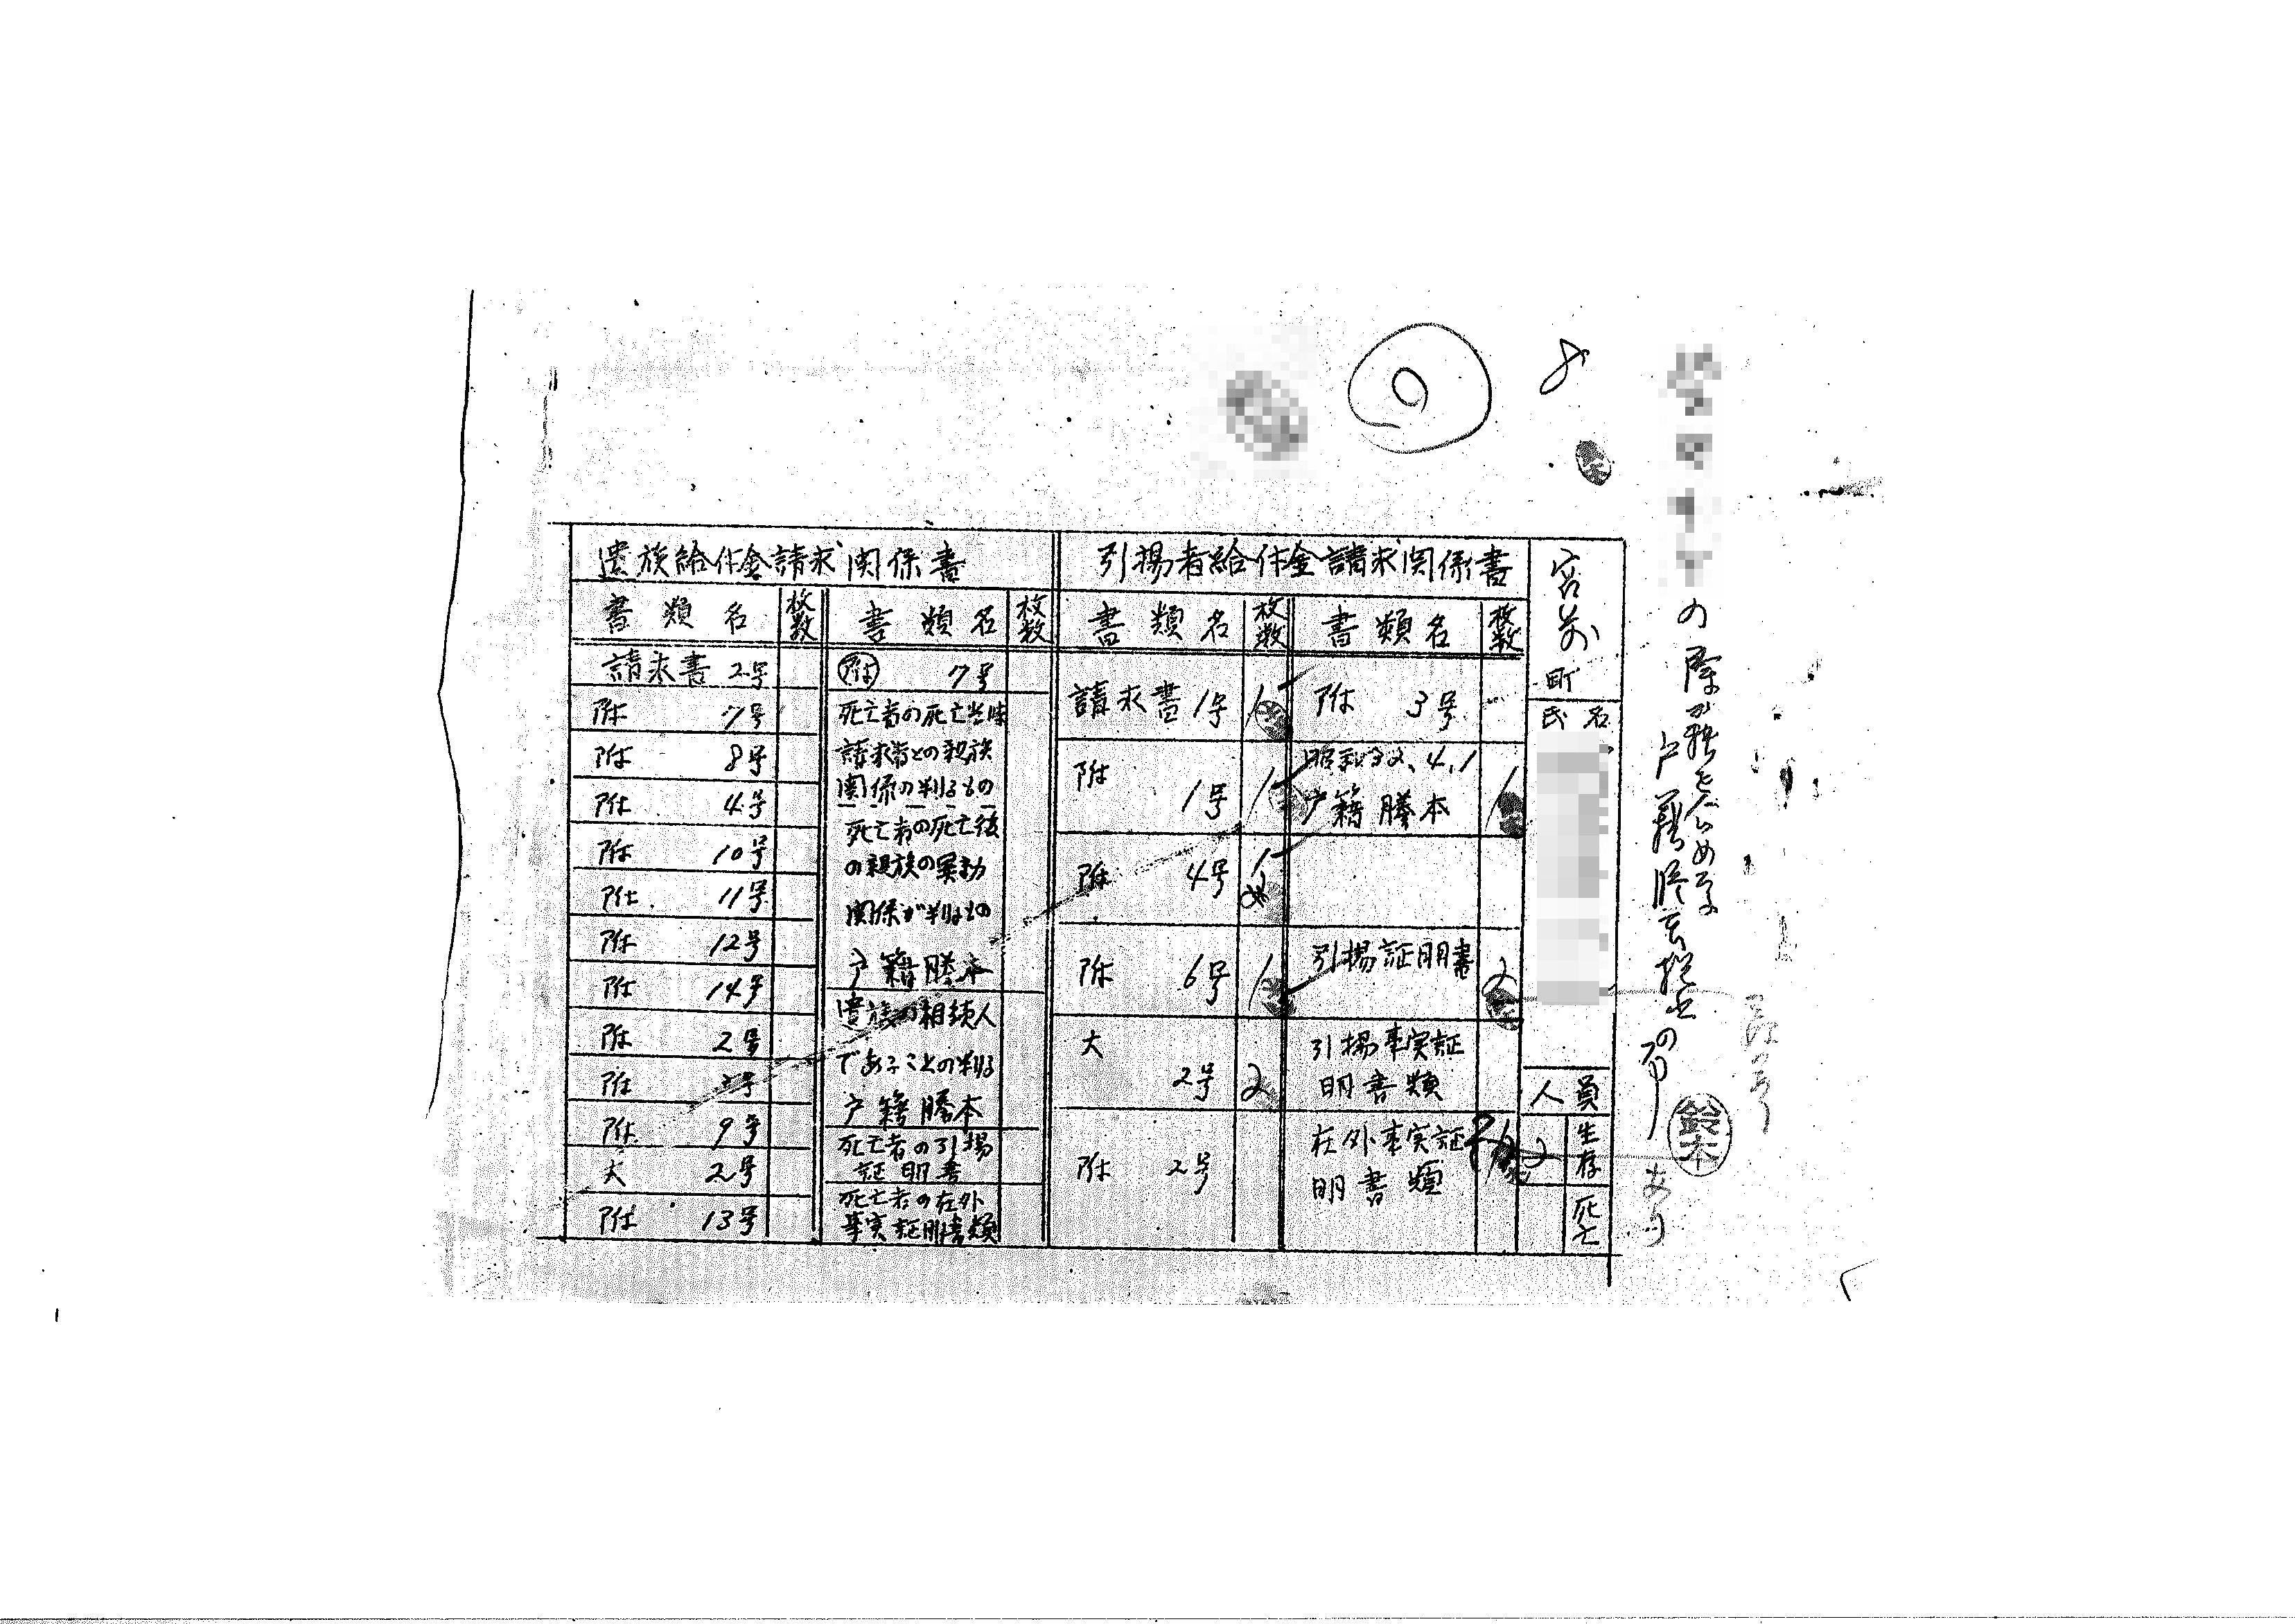 8
の除か籍を含める
戸籍謄
あり
鈴木
宮前
町
氏名
人員
生存
2
死亡
引揚者給付金請求関係書
書類名
枚数
書類名
枚数
請求書 1号
1
附 3号
附 1号
1
昭和32、4、1
戸籍謄本
1
附 4号
1
附 6号
1
引揚証明書
2
大 2号
2
引揚事実証
明書類
附 2号
在外事実証
明書類
遺族給付金請求関係書
書類名
枚数
書類名
枚数
請求書 2号
附 7号
附 8号
附 4号
附 10号
附 11号
附 12号
附 14号
附 2号
附 3号
附 9号
大 2号
附 13号
附 7号
死亡者の死亡当時
請求者との親族
関係の判るもの
死亡者の死亡後
の親族の異動
関係が判るもの
戸籍謄本
遺族の相続人
であることの判る
戸籍謄本
死亡者の引揚
証明書
死亡者の在外
事実証明書類